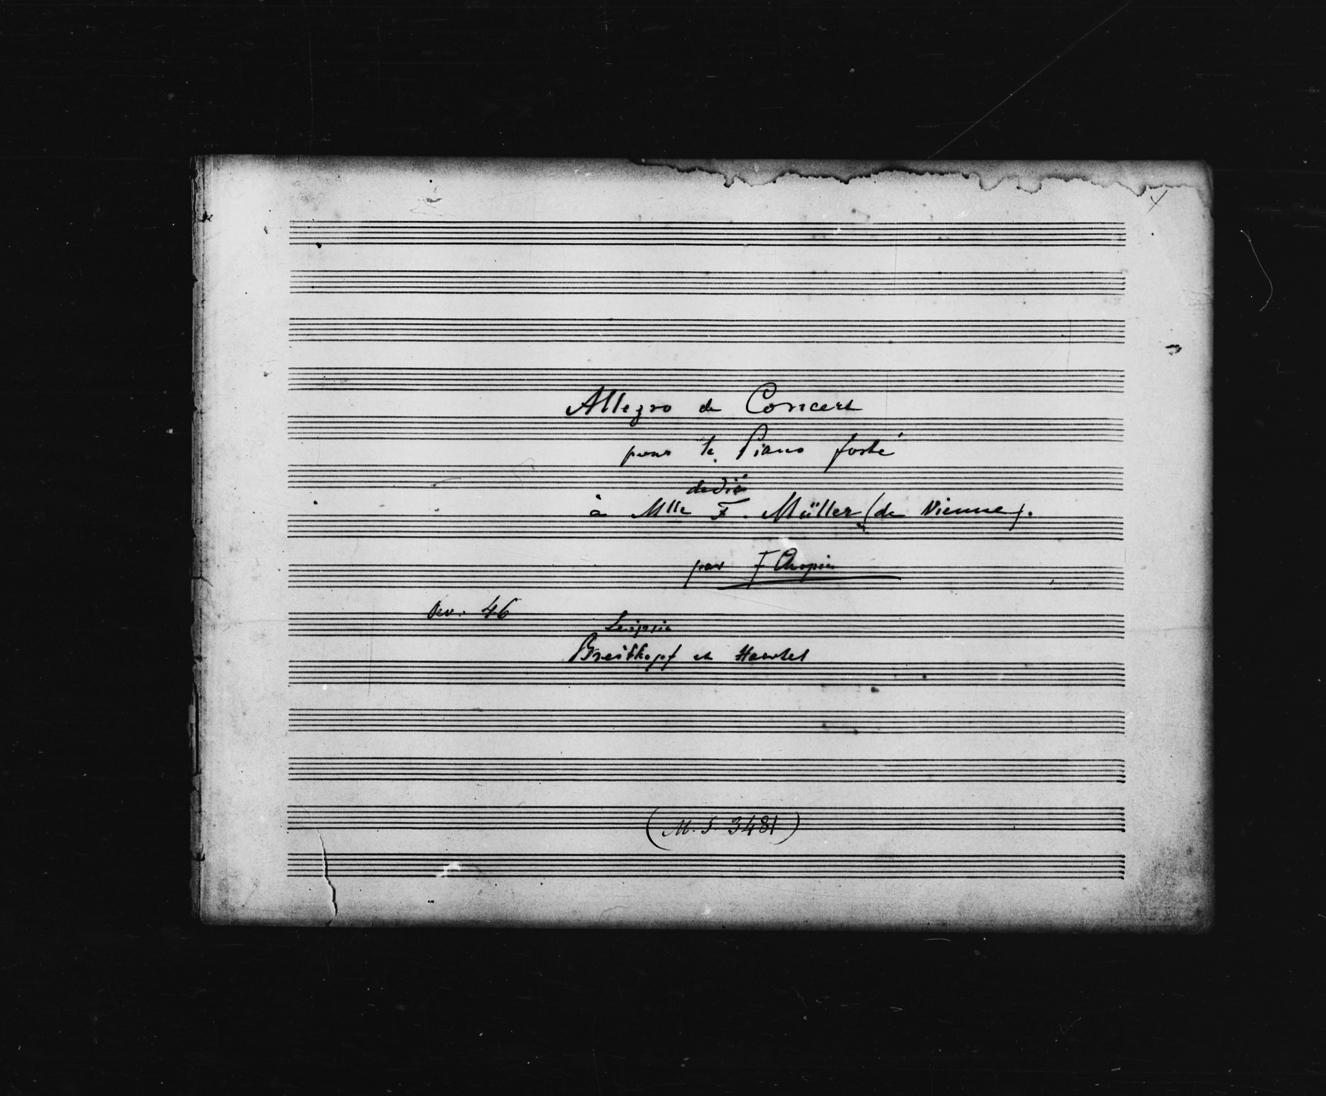 Allegro de Concert
pour le Piano forté
dedié
à Mlle F. Müller (de Vienne).
par F Chopin
Oev. 46
Leipsic
Breitkopf et Haertel
(M. S. 3481)